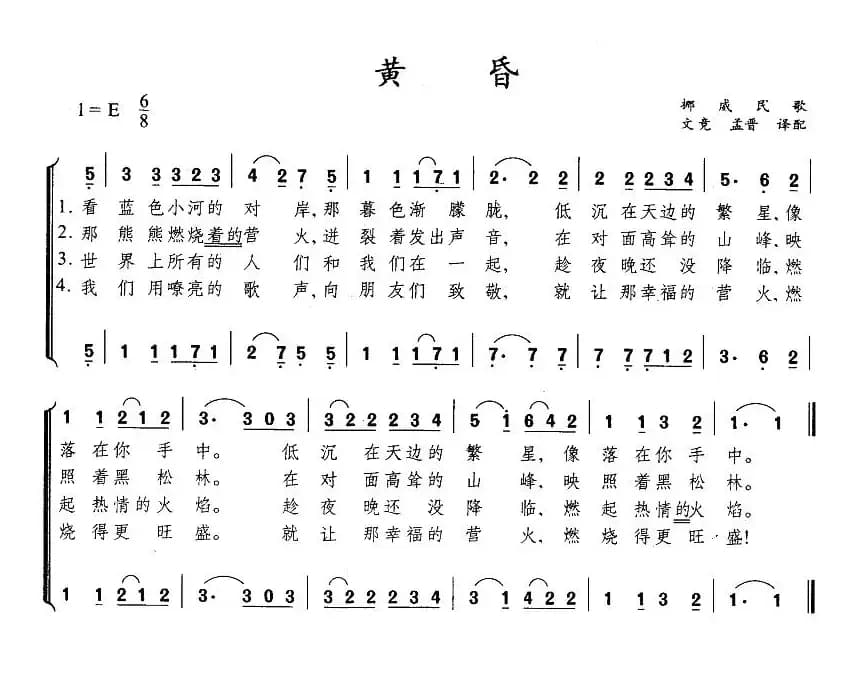 黄 昏
1=E 6/8
挪 威 民 歌
文竞 孟晋 译配
5 | 3 3 3 3 2 3 | 4 2 7 5 | 1 1 1 1 7 1 | 2· 2 2 | 2 2 2 2 3 4 | 5· 6 2 |
1. 看 蓝 色 小 河 的 对 岸, 那 暮 色 渐 朦 胧, 低 沉 在 天 边 的 繁 星, 像
2. 那 熊 熊 燃 烧 着 的 营 火, 迸 裂 着 发 出 声 音, 在 对 面 高 耸 的 山 峰, 映
3. 世 界 上 所 有 的 人 们 和 我 们 在 一 起, 趁 夜 晚 还 没 降 临, 燃
4. 我 们 用 嘹 亮 的 歌 声, 向 朋 友 们 致 敬, 就 让 那 幸 福 的 营 火, 燃
5 | 1 1 1 1 7 1 | 2 7 5 5 | 1 1 1 1 7 1 | 7· 7 7 | 7 7 7 7 1 2 | 3· 6 2 |
1 1 2 1 2 | 3· 3 0 3 | 3 2 2 2 3 4 | 5 1 6 4 2 | 1 1 3 2 | 1· 1 ‖
落 在 你 手 中。 低 沉 在 天 边 的 繁 星, 像 落 在 你 手 中。
照 着 黑 松 林。 在 对 面 高 耸 的 山 峰、 映 照 着 黑 松 林。
起 热 情 的 火 焰。 趁 夜 晚 还 没 降 临、 燃 起 热 情 的 火 焰。
烧 得 更 旺 盛。 就 让 那 幸 福 的 营 火、 燃 烧 得 更 旺 盛!
1 1 2 1 2 | 3· 3 0 3 | 3 2 2 2 3 4 | 3 1 4 2 2 | 1 1 3 2 | 1· 1 ‖